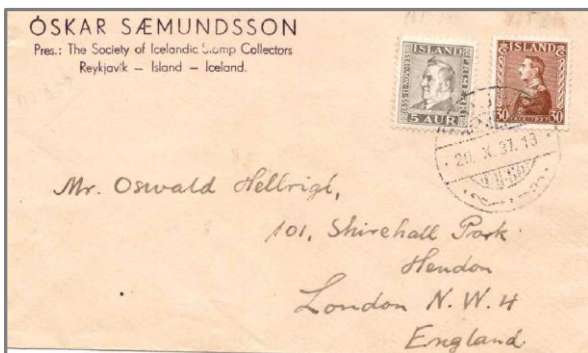 ÓSKAR SÆMUNDSSON
Pres.: The Society of Icelandic Stamp Collectors
Reykjavík – Island – Iceland.
ISLAND
5 AUR
ISLAND
30 30
20. X. 37. 13
Mr. Oswald Hellrigl,
101, Shirehall Park
Hendon
London N.W.4
England.